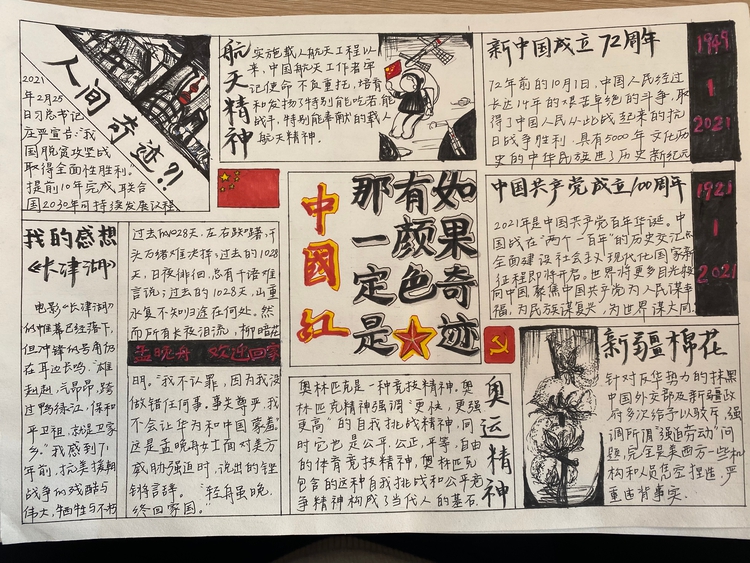 人间奇迹?!
2021
年2月25
日习总书记
庄严宣告:"我
国脱贫攻坚战
取得全面性胜利。
提前10年完成联合
国2030年可持续发展议程
航天精神
实施载人航天工程以
来,中国航天工作者牢
记使命不负重托,培育
和发扬了特别能吃苦能
战斗,特别能奉献的载人
航天精神。
新中国成立72周年
72年前的10月1日,中国人民经过
长达14年的艰苦卓绝的斗争,取
得了中国人民从此战起来的抗
日战争胜利,具有5000年文化历
史的中华民族进了历史新纪元
1949
2021
中国共产党成立100周年
2021年是中国共产党百年华诞。中
国战在"两个一百年"的历史交汇点
全面建设社会主义现代化国家新
征程即将开启。世界将更多目光投
向中国聚焦中国共产党为人民谋幸
福,为民族谋复兴,为世界谋大同
1921
2021
如果奇迹
有颜色
那一定是
中國红
我的感想
《长津湖》
电影《长津湖》
的帷幕已经落下,
但冲锋的号角仍
在耳边长鸣。"雄
赳赳,气昂昂,跨
过鸭绿江,保和
平卫祖,就是卫家
乡。"我感到71
年前,抗美援朝
战争的残酷与
伟大,牺牲与不朽
过去的1028天,左右踟蹰,千
头万绪难抉择;过去的1028
天,日夜徘徊,总有千语难
言说;过去的1028天,山重
水复不知归途在何处。然
而所有长夜泪流,柳暗花
孟晚舟 欢迎回家
明。"我不认罪,因为我没
做错任何事,事实尊严我
不会让华为和中国蒙羞"
这是孟晚舟女士面对美方
威胁强迫时,说出的铿
锵言辞。"轻舟虽晚,
终回家国。"
奥运精神
奥林匹克是一种竞技精神。奥
林匹克精神强调"更快,更强
更高"的自我挑战精神,同
时它也是公平,公正,平等,自由
的体育竞技精神,奥林匹克
包含的这种自我挑战和公平竞
争精神构成了当代人的基石.
新疆棉花
针对反华势力的抹黑
中国外交部及新疆政
府多次给予以驳斥,强
调所谓"强迫劳动"问
题,完全是美西方一些机
构和人员凭空捏造,严
重违背事实.